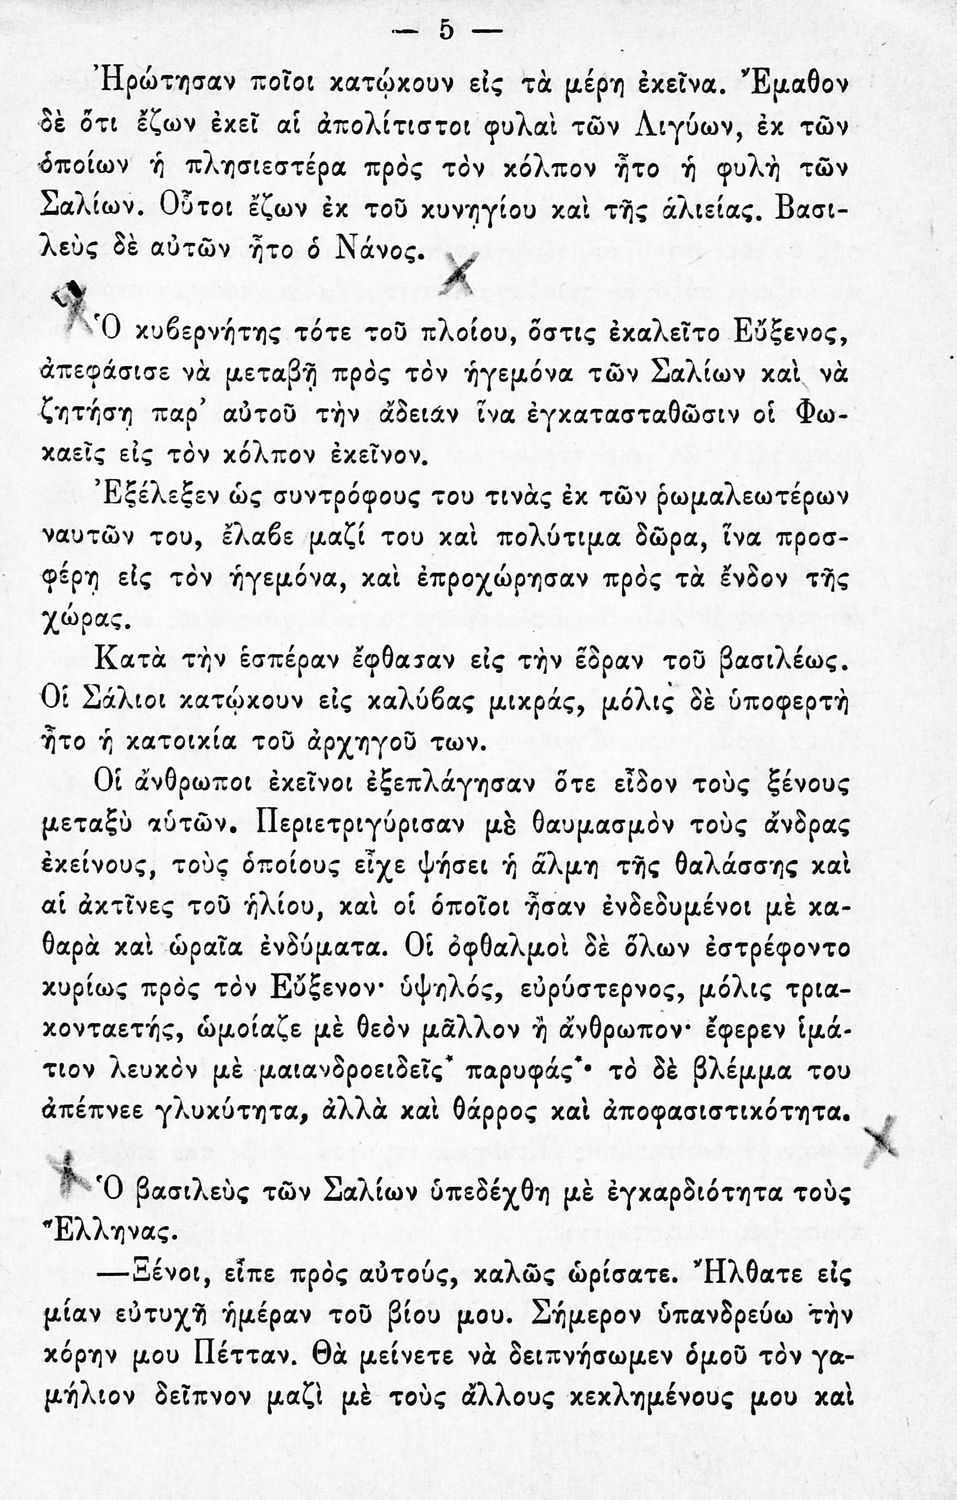 — 5 —
Ἠρώτησαν ποῖοι κατῴκουν εἰς τὰ μέρη ἐκεῖνα. Ἔμαθον
δὲ ὅτι ἔζων ἐκεῖ αἱ ἀπολίτιστοι φυλαὶ τῶν Λιγύων, ἐκ τῶν
ὁποίων ἡ πλησιεστέρα πρὸς τὸν κόλπον ἦτο ἡ φυλὴ τῶν
Σαλίων. Οὗτοι ἔζων ἐκ τοῦ κυνηγίου καὶ τῆς ἁλιείας. Βασι-
λεὺς δὲ αὐτῶν ἦτο ὁ Νάνος.
Ὁ κυβερνήτης τότε τοῦ πλοίου, ὅστις ἐκαλεῖτο Εὔξενος,
ἀπεφάσισε νὰ μεταβῇ πρὸς τὸν ἡγεμόνα τῶν Σαλίων καὶ νὰ
ζητήσῃ παρ’ αὐτοῦ τὴν ἄδειαν ἵνα ἐγκατασταθῶσιν οἱ Φω-
καεῖς εἰς τὸν κόλπον ἐκεῖνον.
Ἐξέλεξεν ὡς συντρόφους του τινὰς ἐκ τῶν ῥωμαλεωτέρων
ναυτῶν του, ἔλαβε μαζί του καὶ πολύτιμα δῶρα, ἵνα προσ-
φέρῃ εἰς τὸν ἡγεμόνα, καὶ ἐπροχώρησαν πρὸς τὰ ἔνδον τῆς
χώρας.
Κατὰ τὴν ἑσπέραν ἔφθασαν εἰς τὴν ἕδραν τοῦ βασιλέως.
Οἱ Σάλιοι κατῴκουν εἰς καλύβας μικράς, μόλις δὲ ὑποφερτὴ
ἦτο ἡ κατοικία τοῦ ἀρχηγοῦ των.
Οἱ ἄνθρωποι ἐκεῖνοι ἐξεπλάγησαν ὅτε εἶδον τοὺς ξένους
μεταξὺ αὑτῶν. Περιετριγύρισαν μὲ θαυμασμὸν τοὺς ἄνδρας
ἐκείνους, τοὺς ὁποίους εἶχε ψήσει ἡ ἅλμη τῆς θαλάσσης καὶ
αἱ ἀκτῖνες τοῦ ἡλίου, καὶ οἱ ὁποῖοι ἦσαν ἐνδεδυμένοι μὲ κα-
θαρὰ καὶ ὡραῖα ἐνδύματα. Οἱ ὀφθαλμοὶ δὲ ὅλων ἐστρέφοντο
κυρίως πρὸς τὸν Εὔξενον· ὑψηλός, εὐρύστερνος, μόλις τρια-
κονταετής, ὡμοίαζε μὲ θεὸν μᾶλλον ἢ ἄνθρωπον· ἔφερεν ἱμά-
τιον λευκὸν μὲ μαιανδροειδεῖς* παρυφάς*· τὸ δὲ βλέμμα του
ἀπέπνεε γλυκύτητα, ἀλλὰ καὶ θάρρος καὶ ἀποφασιστικότητα.
Ὁ βασιλεὺς τῶν Σαλίων ὑπεδέχθη μὲ ἐγκαρδιότητα τοὺς
Ἕλληνας.
—Ξένοι, εἶπε πρὸς αὐτούς, καλῶς ὡρίσατε. Ἤλθατε εἰς
μίαν εὐτυχῆ ἡμέραν τοῦ βίου μου. Σήμερον ὑπανδρεύω τὴν
κόρην μου Πέτταν. Θὰ μείνετε νὰ δειπνήσωμεν ὁμοῦ τὸν γα-
μήλιον δεῖπνον μαζὶ μὲ τοὺς ἄλλους κεκλημένους μου καὶ